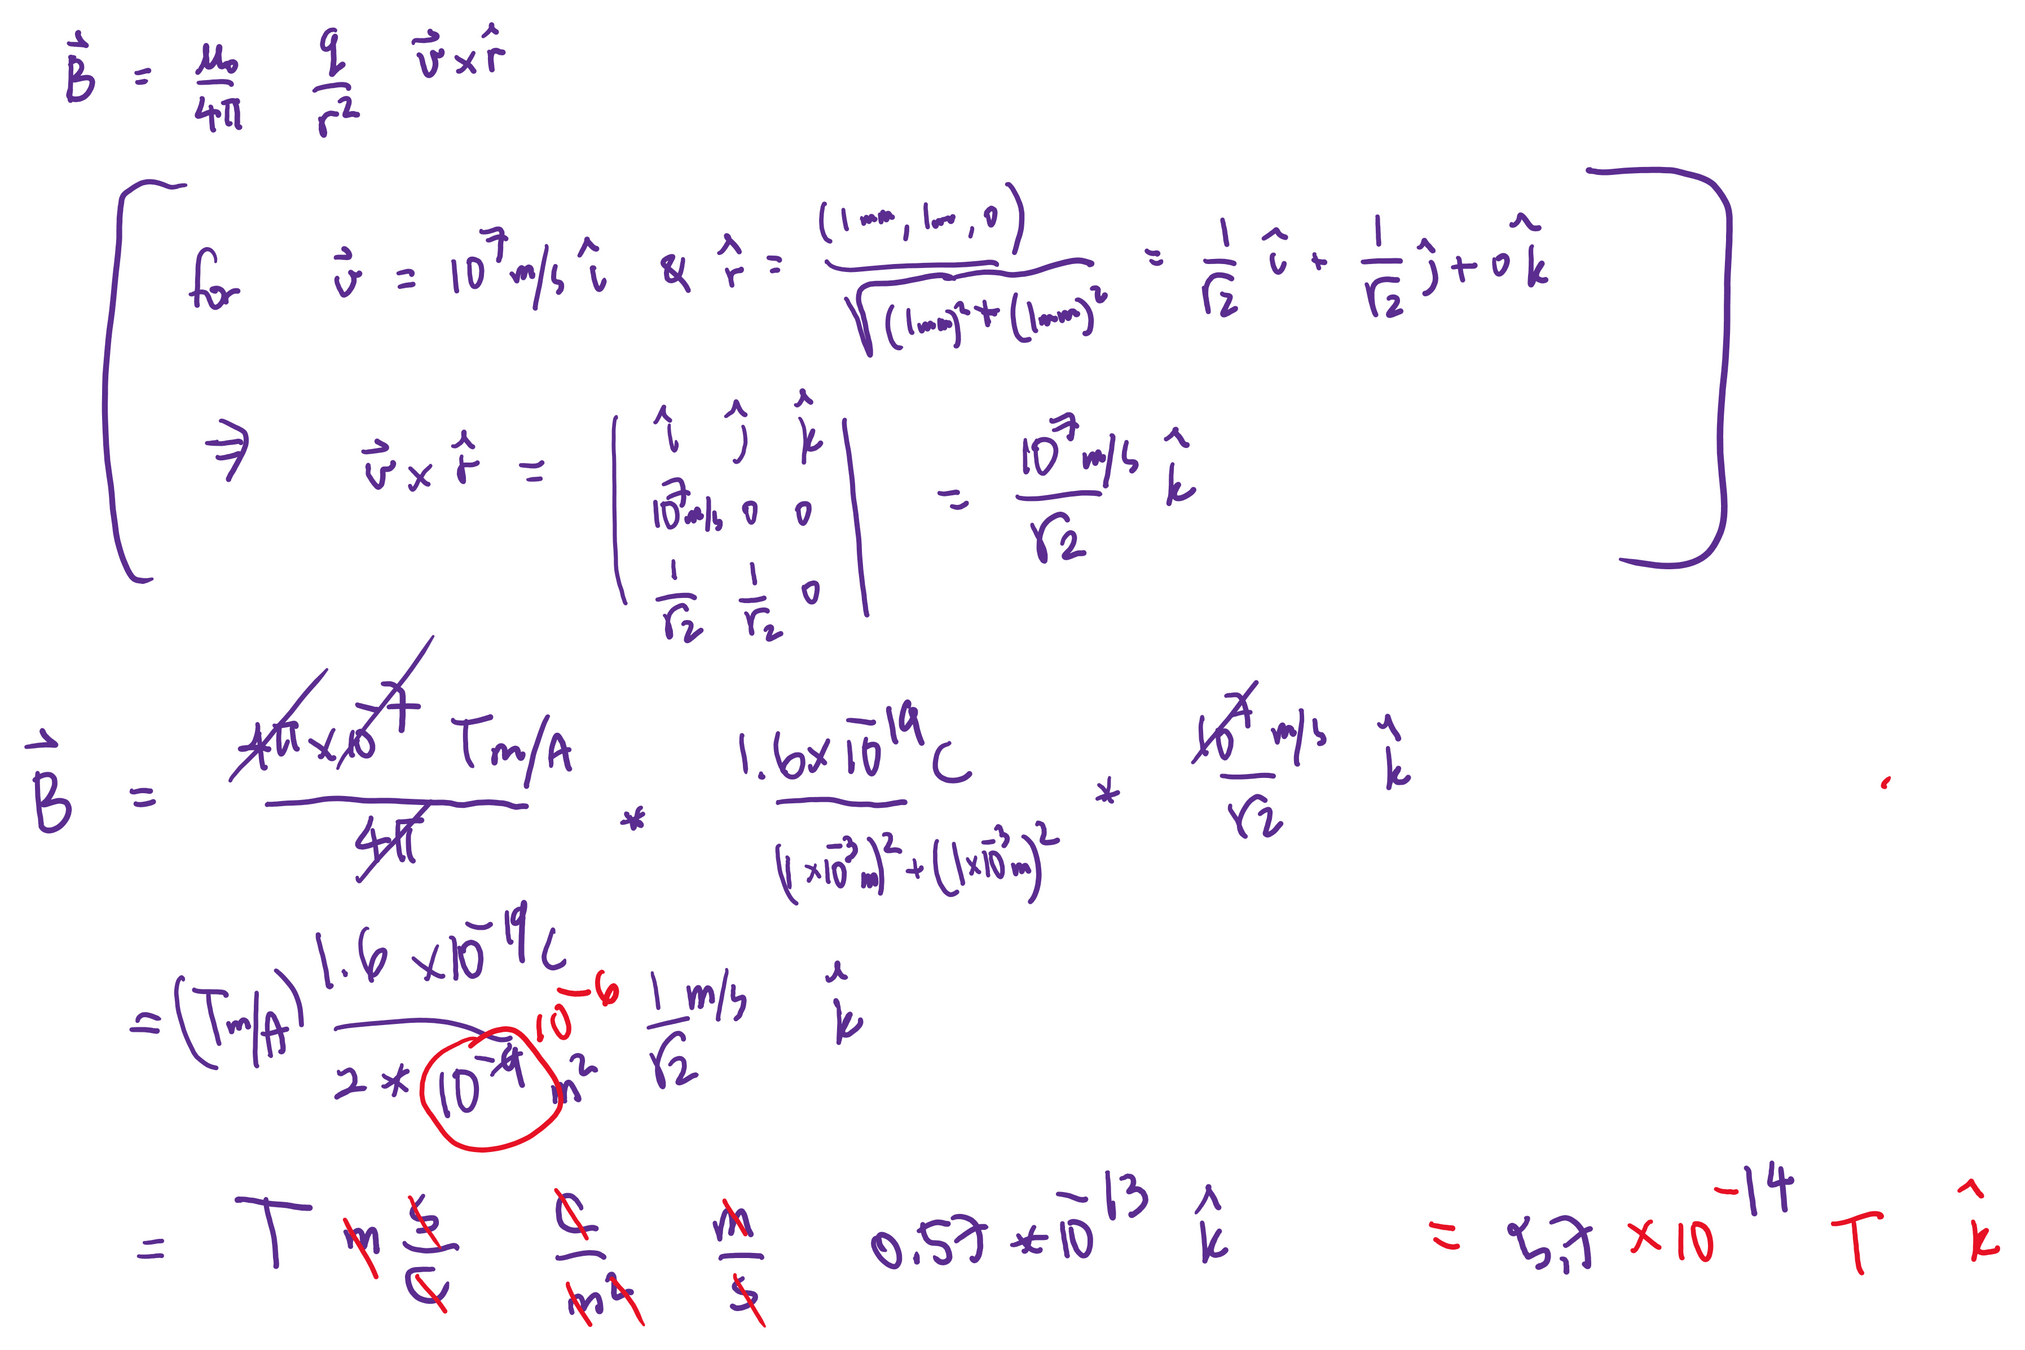 B⃗ = μ₀/4π q/r² v⃗ × r̂
for v⃗ = 10⁷ m/s î & r̂ = (1mm, 1m, 0)/√((1mm)² + (1mm)²) = 1/√2 î + 1/√2 ĵ + 0 k̂
⇒ v⃗ × r̂ = | î ĵ k̂ | = 10⁷ m/s / √2 k̂
10⁷ m/s 0 0
1/√2 1/√2 0
B⃗ = 4π×10⁻⁷ Tm/A / 4π * 1.6×10⁻¹⁹ C / (1×10⁻³ m)² + (1×10⁻³ m)² * 10⁷ m/s / √2 k̂
= (Tm/A) 1.6 ×10⁻¹⁹ C / 2 * 10⁻⁹ m² 10⁻⁶ 1/√2 m/s k̂
= T m s/C C/m² m/s 0.57 * 10⁻¹³ k̂ = 5.7 × 10⁻¹⁴ T k̂